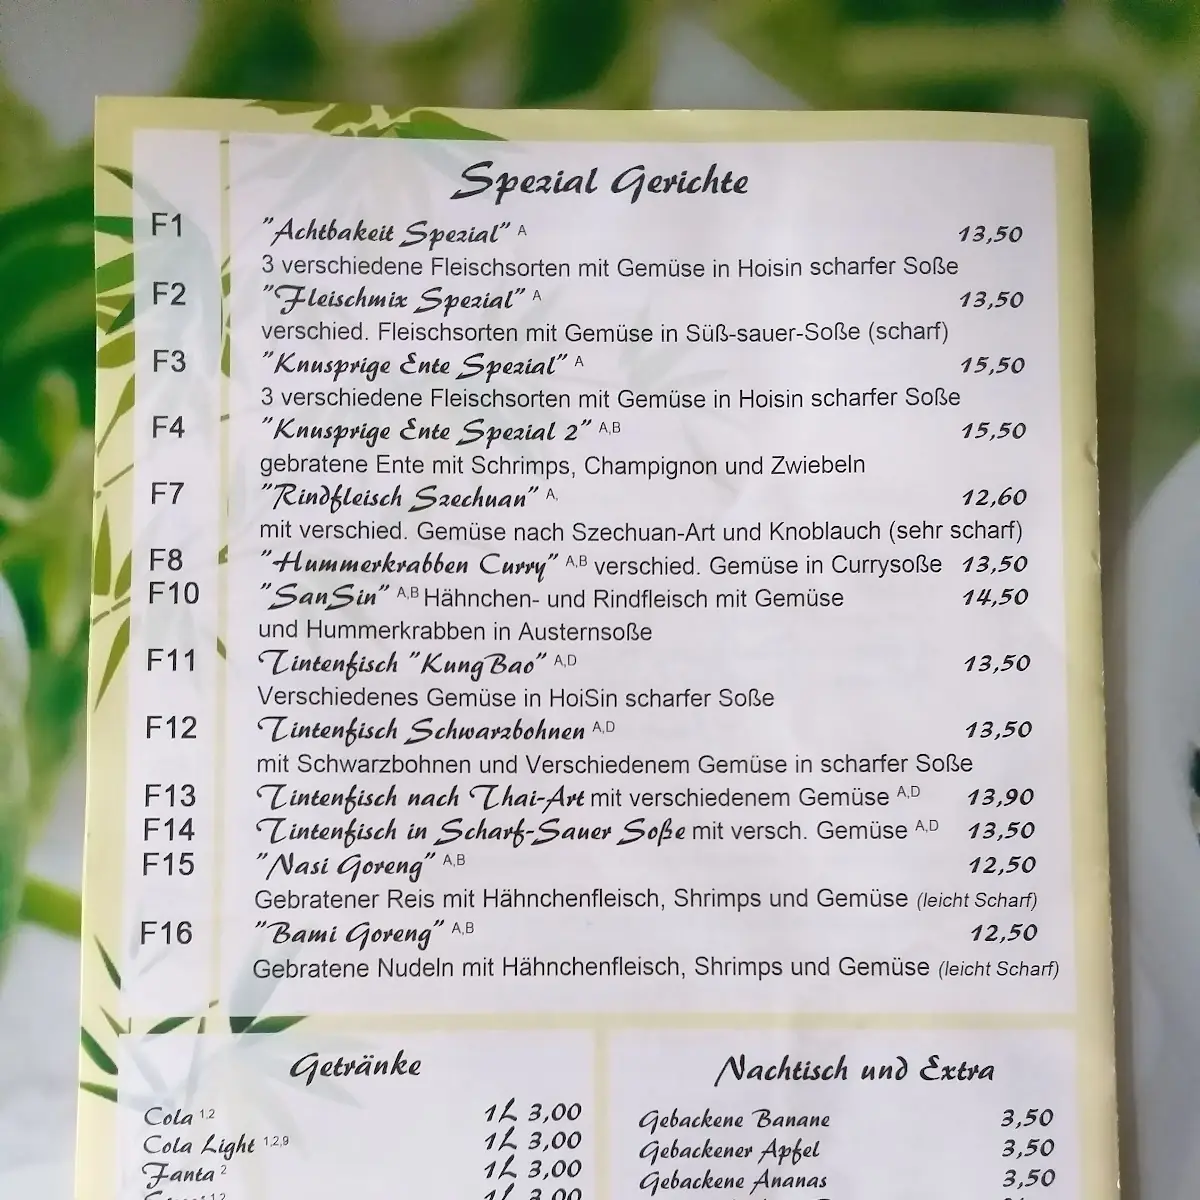 Spezial Gerichte
F1 "Achtbakeit Spezial" A 13,50
3 verschiedene Fleischsorten mit Gemüse in Hoisin scharfer Soße
F2 "Fleischmix Spezial" A 13,50
verschied. Fleischsorten mit Gemüse in Süß-sauer-Soße (scharf)
F3 "Knusprige Ente Spezial" A 15,50
3 verschiedene Fleischsorten mit Gemüse in Hoisin scharfer Soße
F4 "Knusprige Ente Spezial 2" A,B 15,50
gebratene Ente mit Schrimps, Champignon und Zwiebeln
F7 "Rindfleisch Szechuan" A, 12,60
mit verschied. Gemüse nach Szechuan-Art und Knoblauch (sehr scharf)
F8 "Hummerkrabben Curry" A,B verschied. Gemüse in Currysoße 13,50
F10 "SanSin" A,B Hähnchen- und Rindfleisch mit Gemüse 14,50
und Hummerkrabben in Austernsoße
F11 Tintenfisch "KungBao" A,D 13,50
Verschiedenes Gemüse in HoiSin scharfer Soße
F12 Tintenfisch Schwarzbohnen A,D 13,50
mit Schwarzbohnen und Verschiedenem Gemüse in scharfer Soße
F13 Tintenfisch nach Thai-Art mit verschiedenem Gemüse A,D 13,90
F14 Tintenfisch in Scharf-Sauer Soße mit versch. Gemüse A,D 13,50
F15 "Nasi Goreng" A,B 12,50
Gebratener Reis mit Hähnchenfleisch, Shrimps und Gemüse (leicht Scharf)
F16 "Bami Goreng" A,B 12,50
Gebratene Nudeln mit Hähnchenfleisch, Shrimps und Gemüse (leicht Scharf)
Getränke
Cola 1,2 1L 3,00
Cola Light 1,2,9 1L 3,00
Fanta 2 1L 3,00
Nachtisch und Extra
Gebackene Banane 3,50
Gebackener Apfel 3,50
Gebackene Ananas 3,50